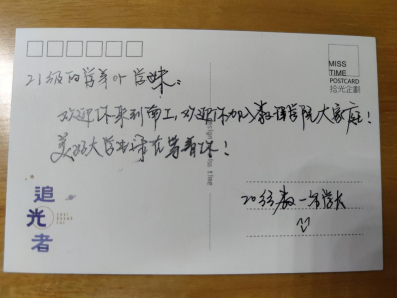 MISS
TIME
POSTCARD
拾光企劃
21级的学弟or学妹：
欢迎你来到南工，欢迎你加入数理学院大家庭！
美好大学生活在等着你！
追
光
者
20级 一名学长